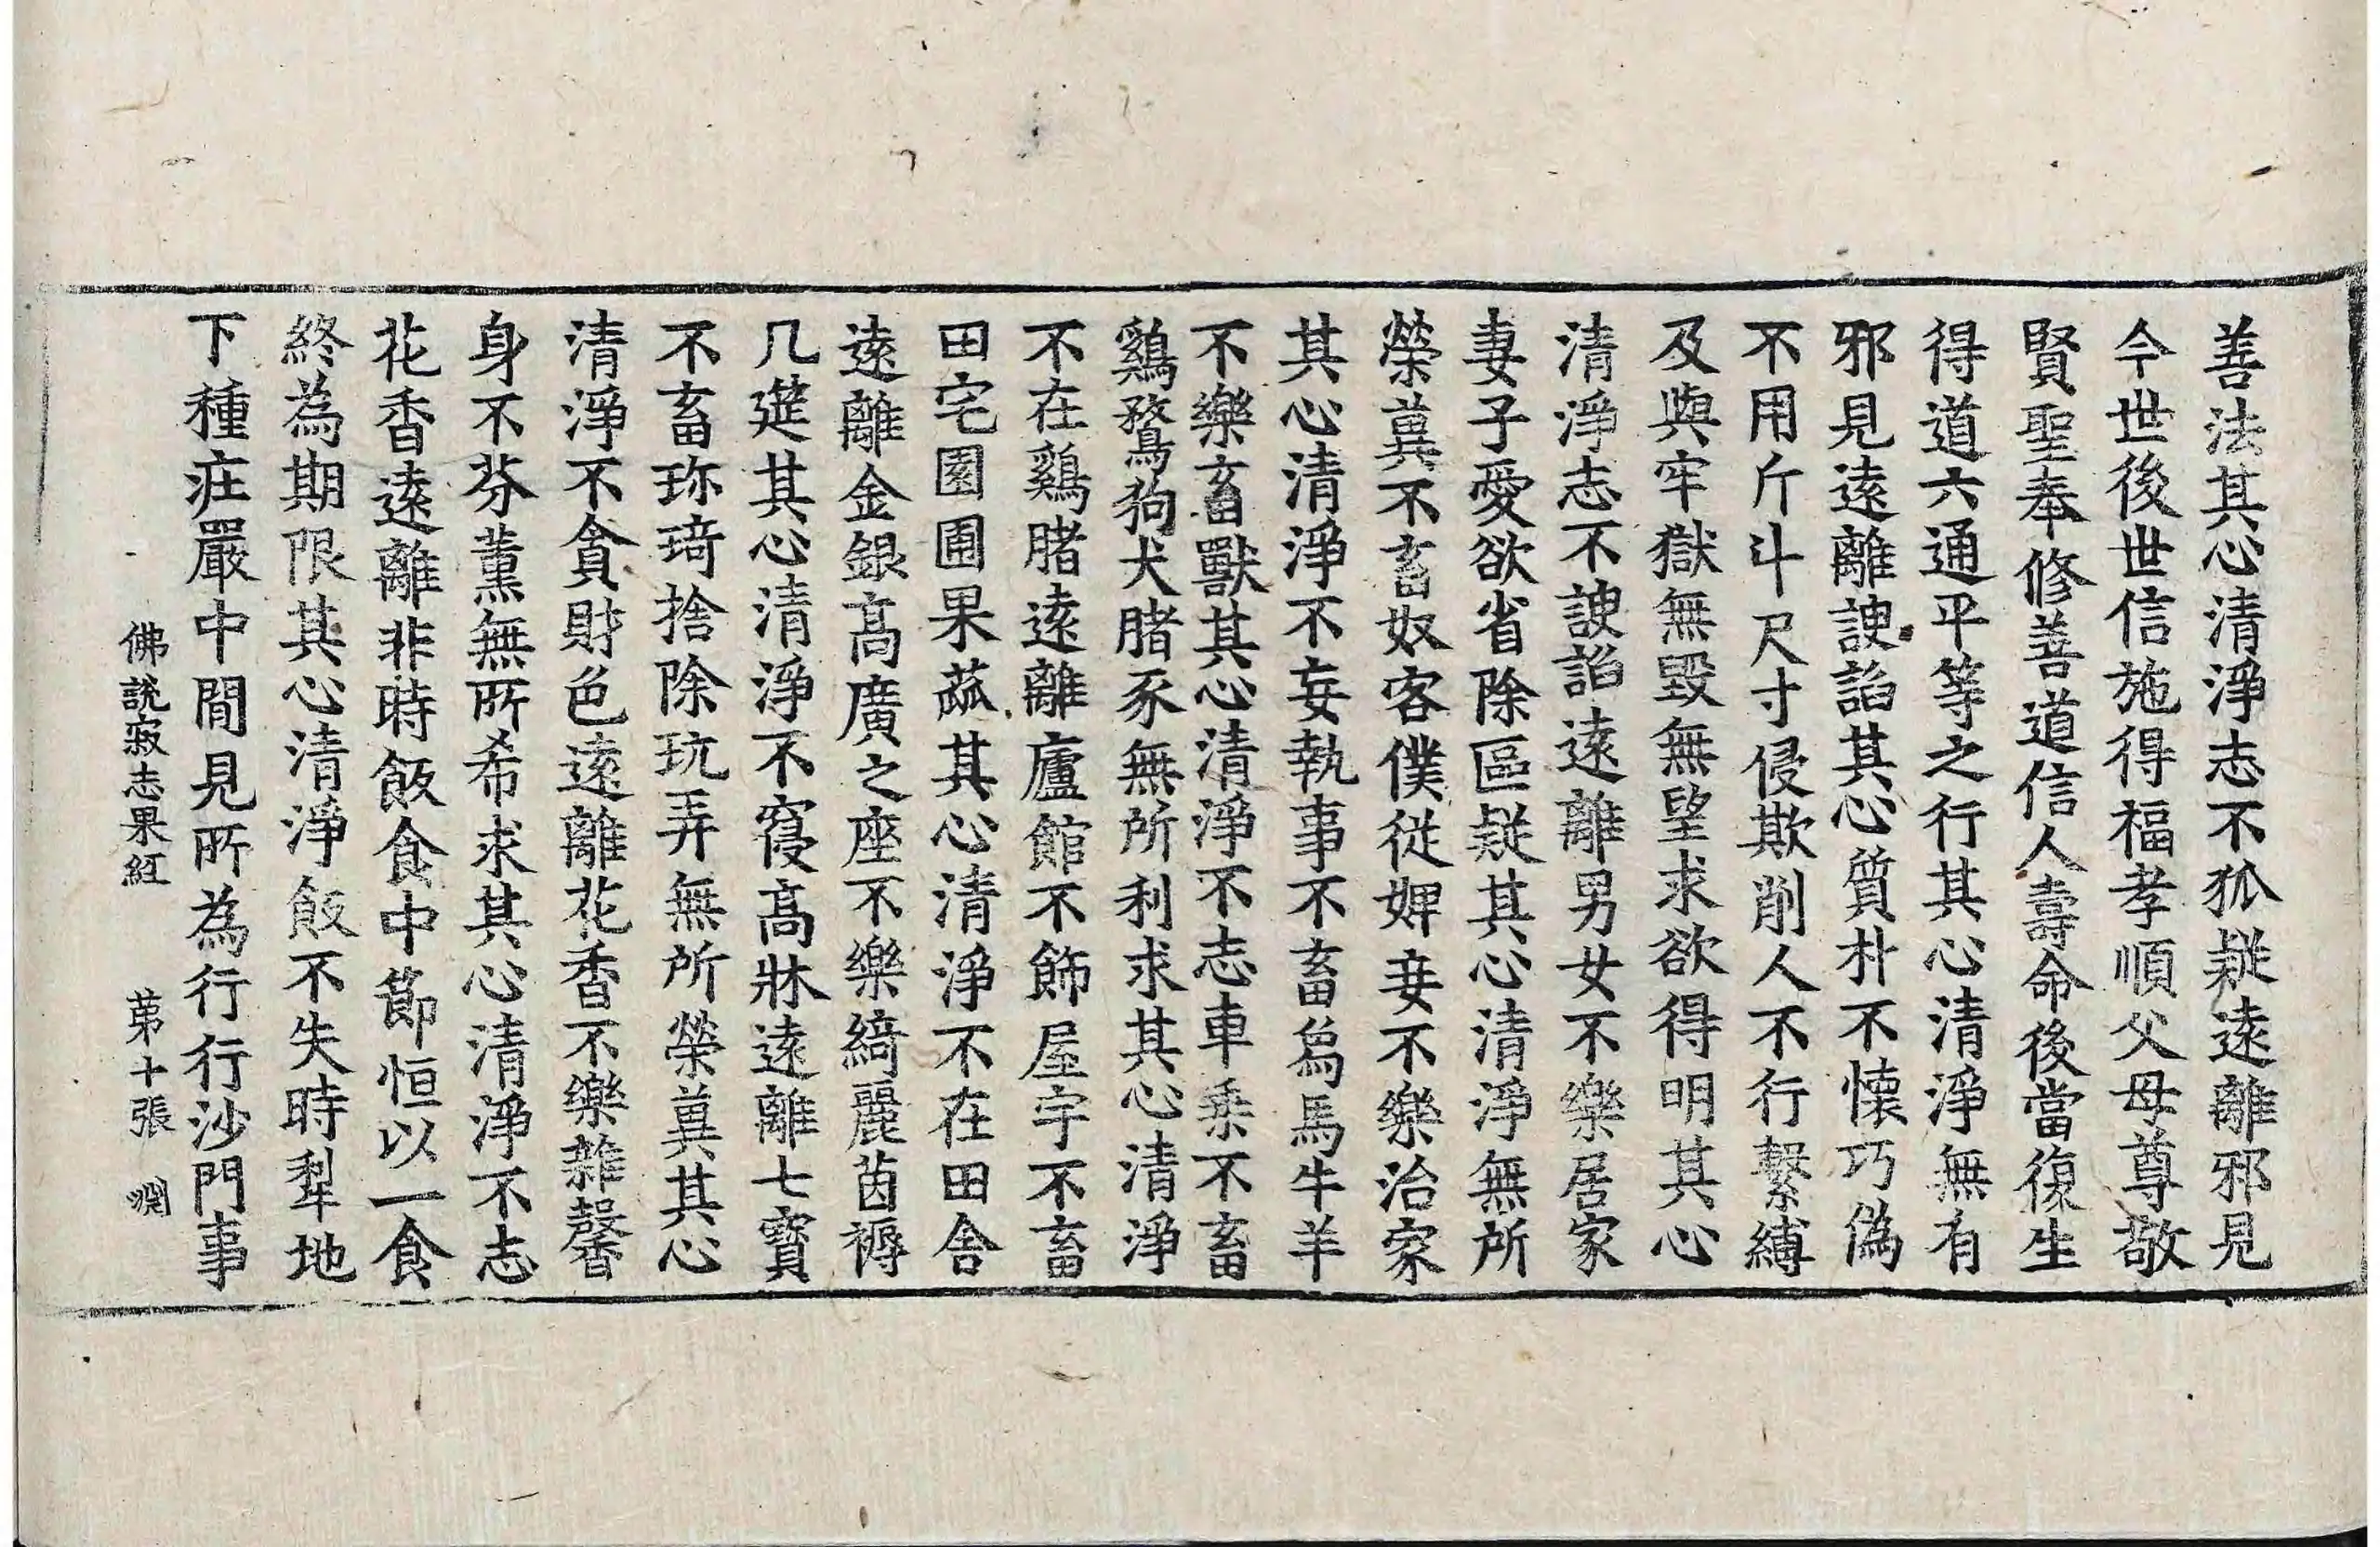 善法其心清淨志不狐疑遠離邪見
今世後世信施得福孝順父母尊敬
賢聖奉修善道信人壽命後當復生
得道六通平等之行其心清淨無有
邪見遠離諛諂其心質朴不懷巧偽
不用斤斗尺寸侵欺削人不行繫縛
及與牢獄無毀無望求欲得明其心
清淨志不諛諂遠離男女不樂居家
妻子愛欲省除區疑其心清淨無所
榮兾不畜奴客僕從婢妾不樂治家
其心清淨不妄執事不畜為馬牛羊
不樂畜獸其心清淨不志車乘不畜
鷄鶩狗犬腤豕無所利求其心清淨
不在鷄腤遠離廬館不飾屋宇不畜
田宅園圃果蓏其心清淨不在田舍
遠離金銀高廣之座不樂綺麗茵褥
几筵其心清淨不寢高牀遠離七寶
不畜珎琦捨除玩弄無所榮兾其心
清淨不貪財色遠離花香不樂雜馨
身不芬薰無所希求其心清淨不志
花香遠離非時飯食中節恒以一食
終為期限其心清淨飯不失時犁地
下種疘嚴中間見所為行行沙門事
佛說寂志果經 苐十張 淵